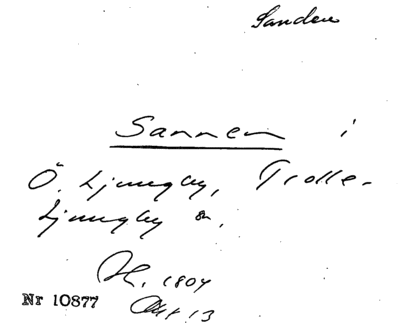 Sanden
Sannen i
Ö. Ljungby, Trolle-
Ljungby sn.
1804
Nr 10877
Akt 13